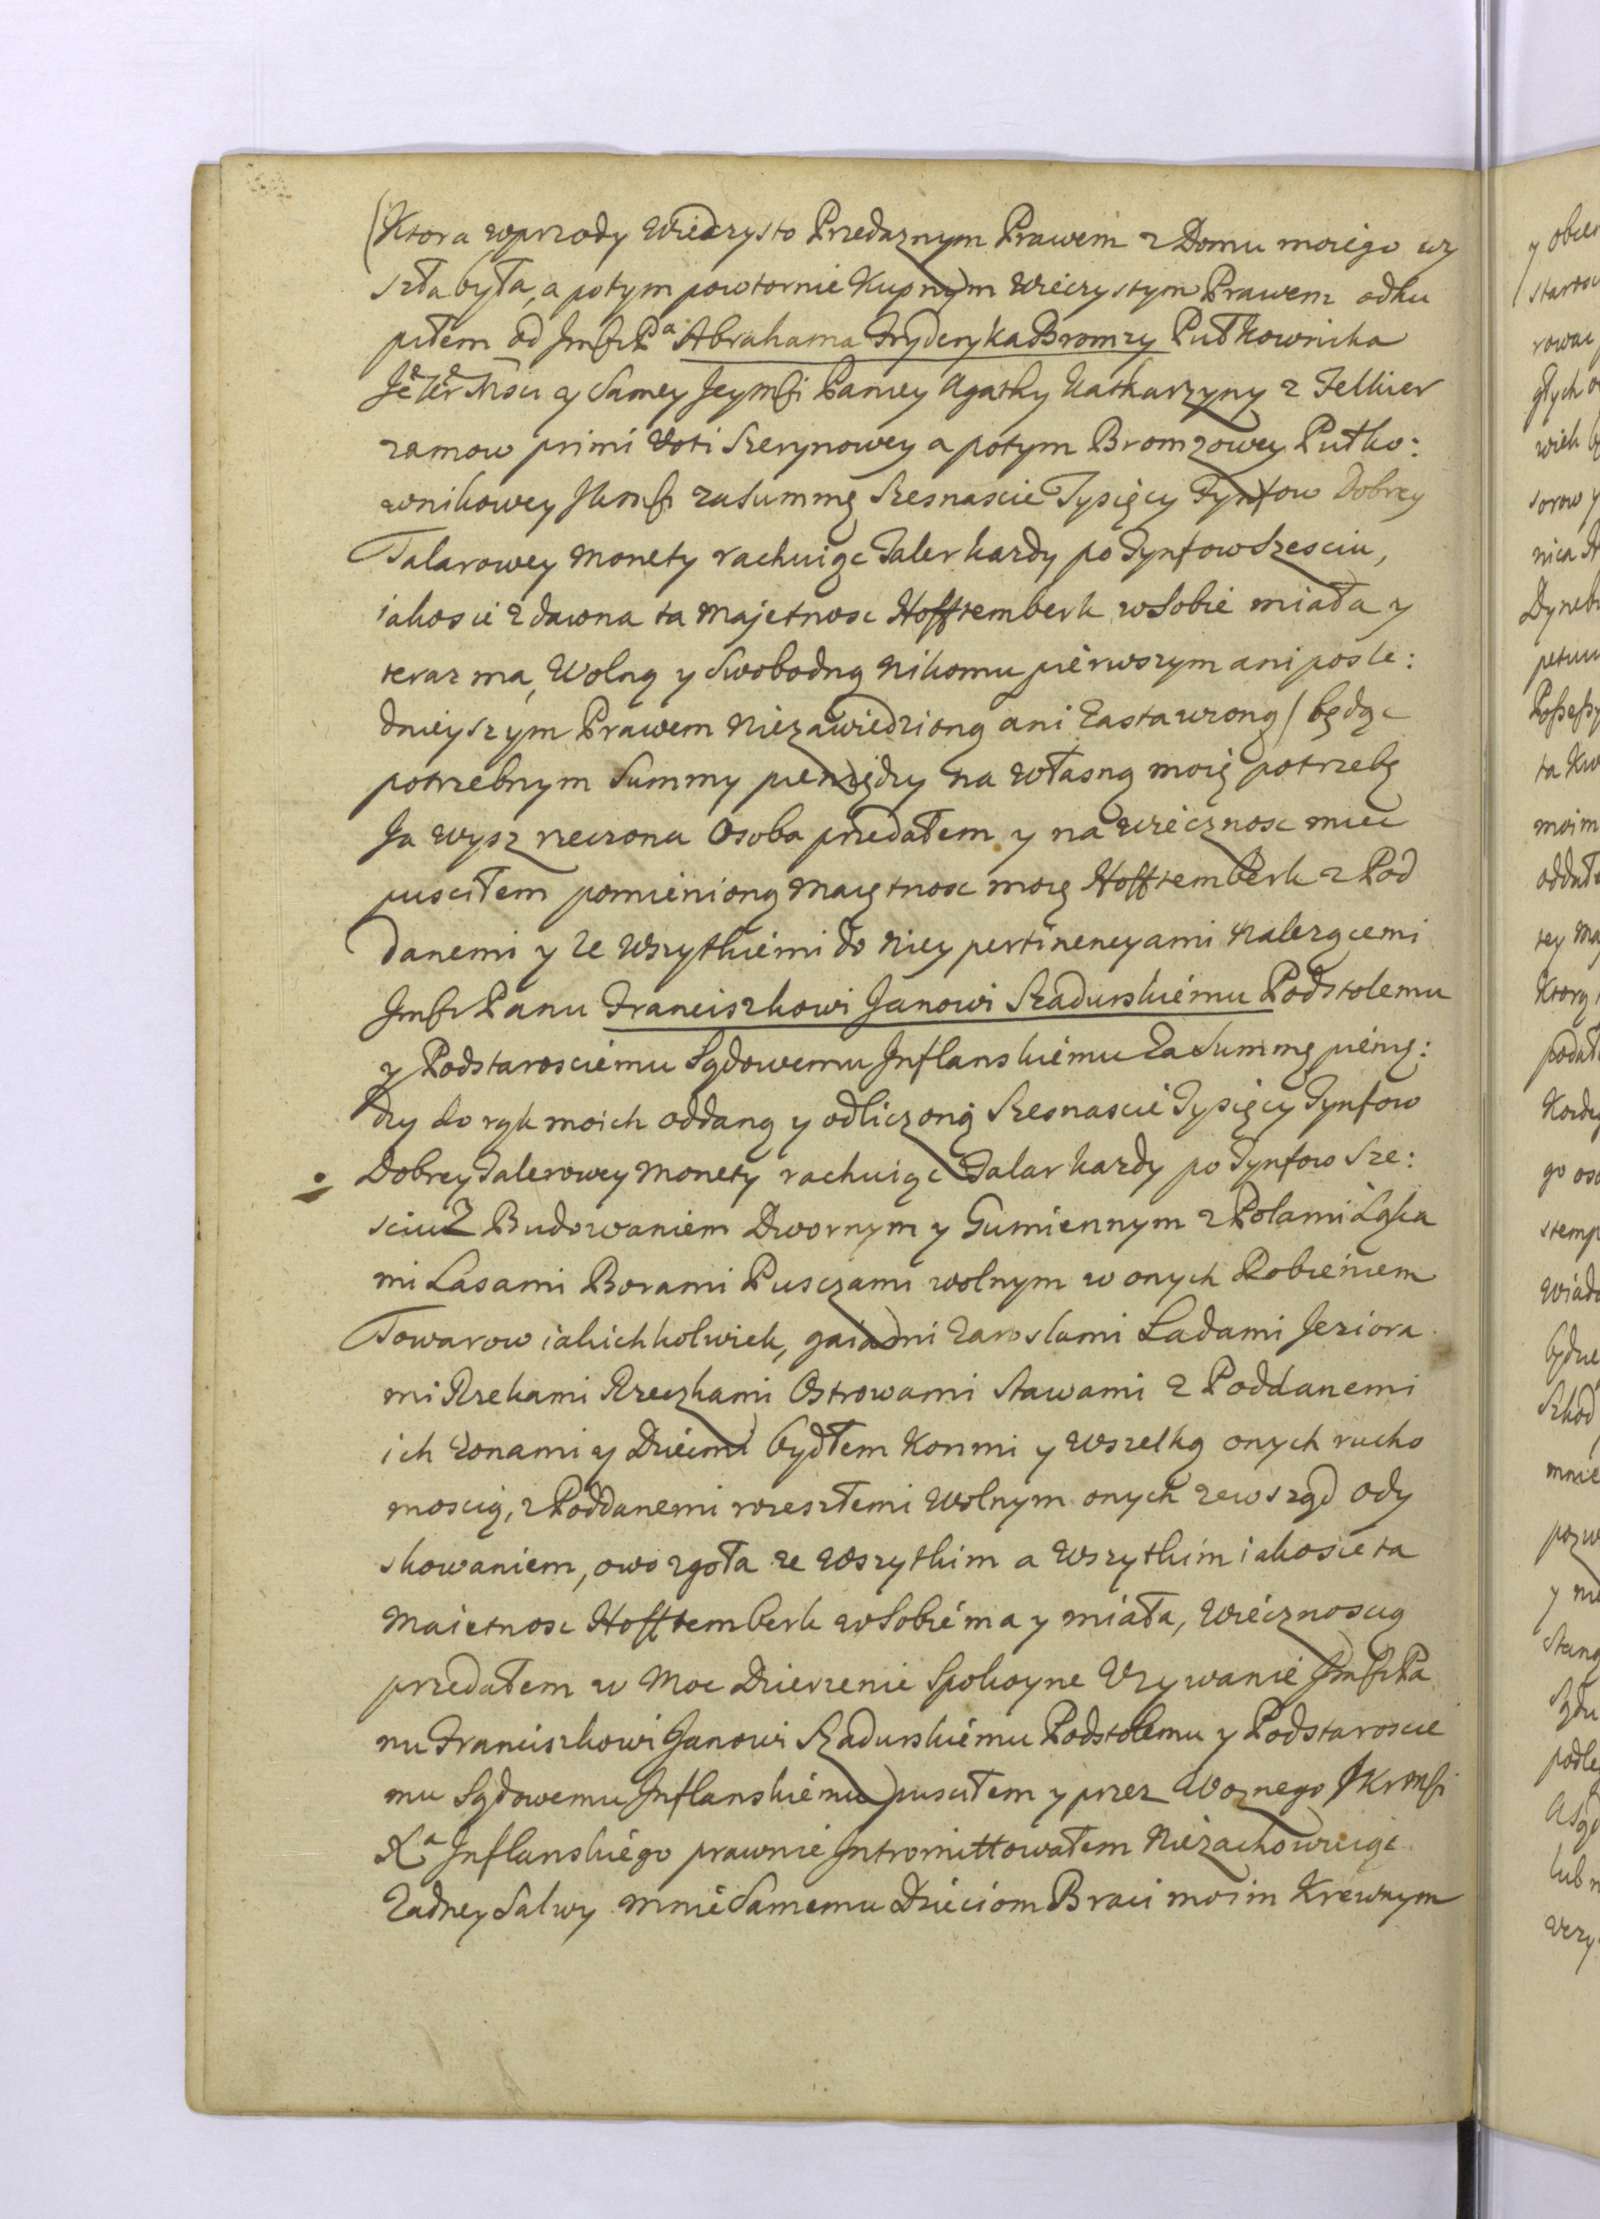 (Ktora wprzody Wieczysto Przedaznym Prawem z Domu moiego wy
szła była, a potym powtornie Kupnym Wieczystym Prawem odku
piłem od Jmśći Pª Abrahama Fryderyka Bromzy Pułkownika
y Samey Jeymśći Paniey Agathy Katharzyny z Felkier
zamow primi Voti Szerynowey a potym Bromzowey Pułko:
wnikowey zasummę Szesnascie Tysięcy Tynfow Dobrey
Talarowey Monety rachuiąc Taler kazdy po Tynfow Szesciu,
iakosie zdawna ta Majetnosc Hofftemberk wsobie miała y
teraz ma, Wolną y Swobodną Nikomu pierwszym ani posle:
dnieyszym Prawem Niezawiedzioną ani Zastawioną) będąc
potrzebnym Summy pieniędzy na Własną moię potrzebę
Ja wysz rzeczona Osoba przedałem y na Wiecznosc
pusciłem pomienioną Maiętnosc moię Hofftemberk z Pod
danemi y ze Wszytkiemi do Niey pertinencyami Nalezącemi
Jmśći Panu Franciszkowi Janowi Szadurskiemu Podstolemu
y Podstarosciemu Sądowemu Inflanskiemu Za Summę pienię:
dzy do rąk moich oddaną y odliczoną Szesnascie Tysięcy Tynfow
Dobrey Talerowey Monety rachuiąc Talar kazdy po Tynfow Sze:
sciu Z Budowaniem Dwornym y Gumiennym z Polami Ląka
mi Lasami Borami Pusczami wolnym w onych Robieniem
Towarow iakichkolwiek, gaiami Zaroslami Ladami Jeziora
mi Rzekami Rzeczkami Ostrowami Stawami z Poddanemi
ich Zonami y Dziecmi bydłem Konmi y Wszelką onych rucho
moscią, z Poddanemi rozeszłemi Wolnym onych zewsząd ody
skowaniem, owo zgoła ze Wszytkim a Wszytkim iakosie ta
Maietnosc Hofftemberk wsobie ma y miała, Wiecznoscią
przedałem w Moc Dzierzenie Spokoyne Vzywanie Jmśći Pa
nu Franciszkowi Janowi Szadurskiemu Podstolemu y Podstaroscie
mu Sądowemu Inflanskiemu pusciłem y przez Woznego JKrMśći
Xª Inflanskiego prawnie Intromittowałem Niezachowuiąc
Zadney Salwy mnie Samemu Dzieciom Braci moim Krewnym